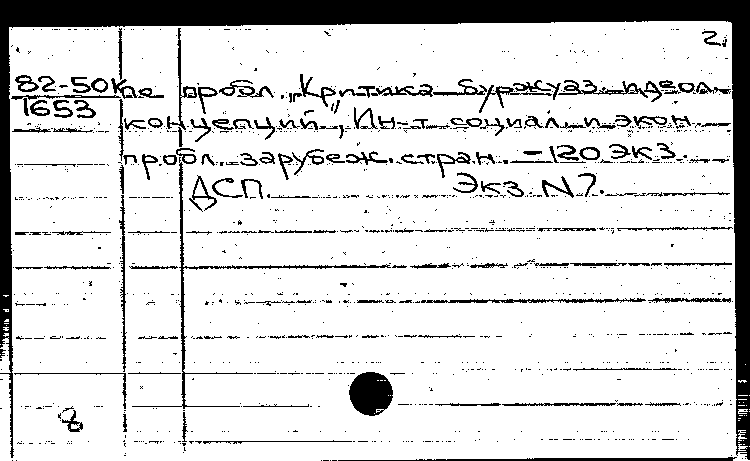 2.
82-50К по пробл. „Критика буржуаз. идеол.
1653
концепций", Ин-т социал. и экон.
пробл. зарубеж. стран. - 120 экз.
ДСП. Экз N7.
8